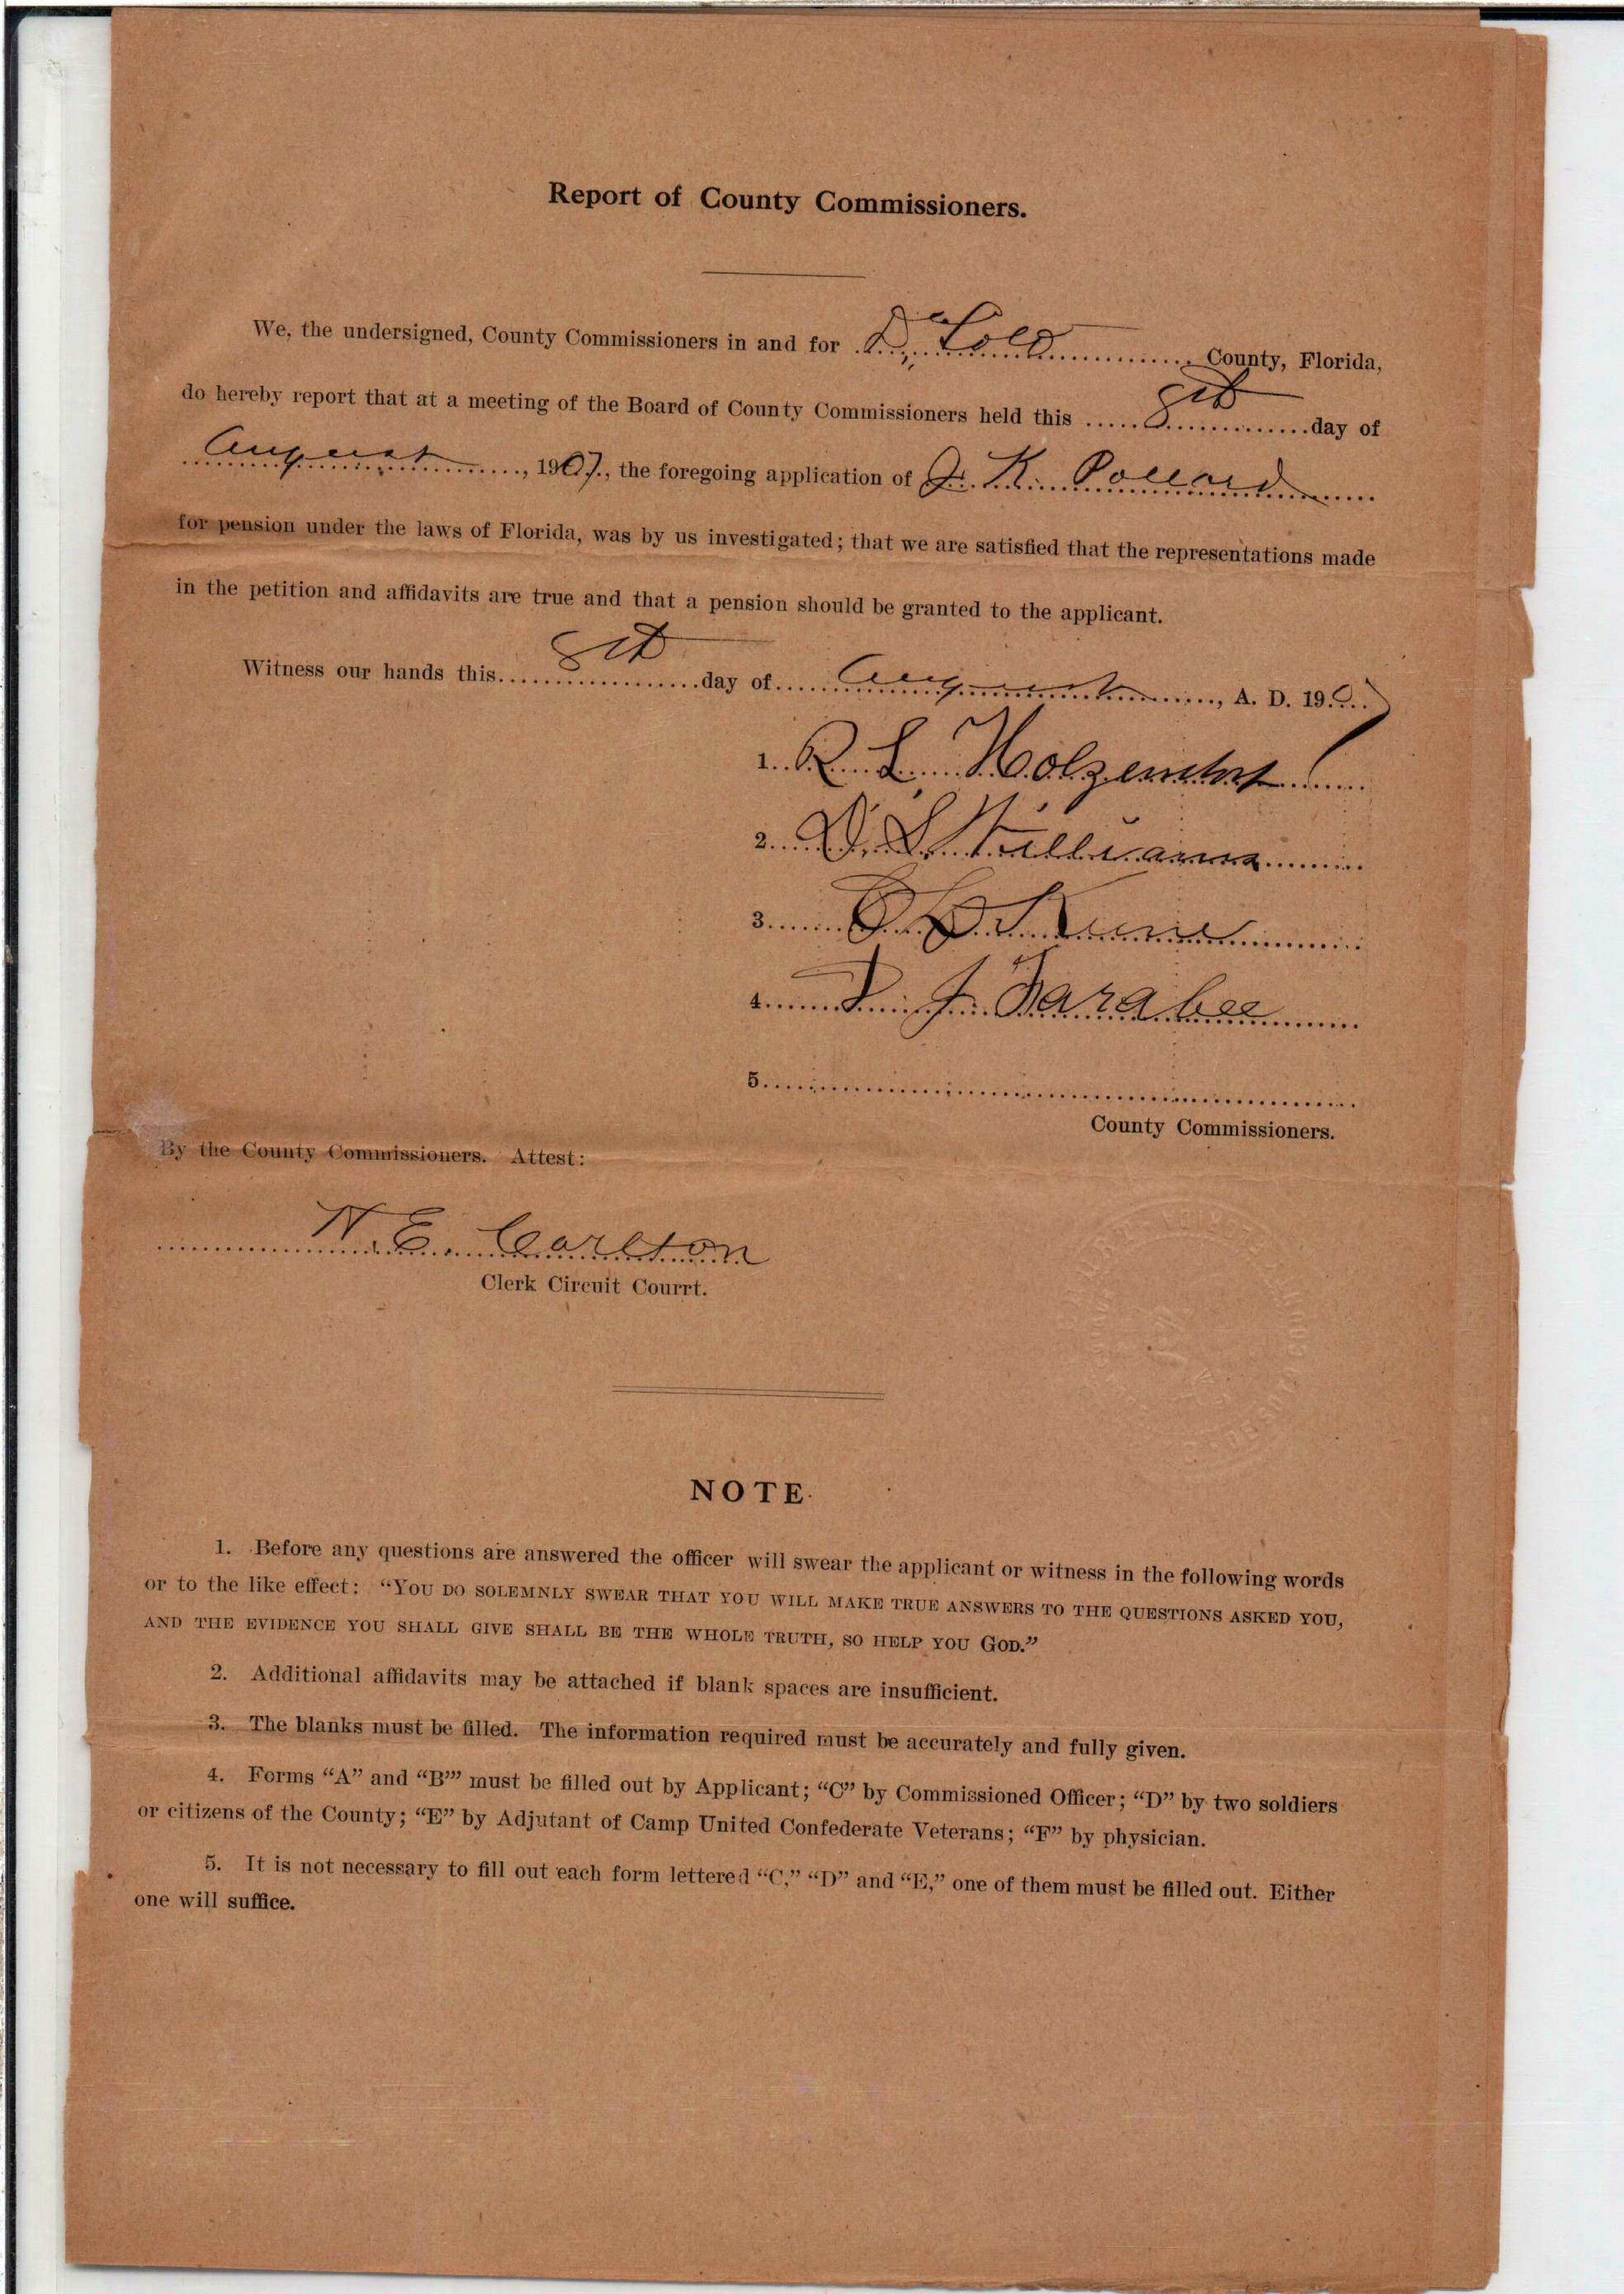 Report of County Commissioners.
We, the undersigned, County Commissioners in and for DeSoto County, Florida,
do hereby report that at a meeting of the Board of County Commissioners held this 8th day of
August, 1907, the foregoing application of J. K. Pollard
for pension under the laws of Florida, was by us investigated; that we are satisfied that the representations made
in the petition and affidavits are true and that a pension should be granted to the applicant.
Witness our hands this 8th day of August, A. D. 190
1. R. L.
2. D. S. Williams
3.
4. F. Farabee
5.
County Commissioners.
By the County Commissioners. Attest:
E. Carlton
Clerk Circuit Courrt.
NOTE.
1. Before any questions are answered the officer will swear the applicant or witness in the following words
or to the like effect: “YOU DO SOLEMNLY SWEAR THAT YOU WILL MAKE TRUE ANSWERS TO THE QUESTIONS ASKED YOU,
AND THE EVIDENCE YOU SHALL GIVE SHALL BE THE WHOLE TRUTH, SO HELP YOU GOD.”
2. Additional affidavits may be attached if blank spaces are insufficient.
3. The blanks must be filled. The information required must be accurately and fully given.
4. Forms “A” and “B”’ must be filled out by Applicant; “C” by Commissioned Officer; “D” by two soldiers
or citizens of the County; “E” by Adjutant of Camp United Confederate Veterans; “F” by physician.
5. It is not necessary to fill out each form lettered “C,” “D” and “E,” one of them must be filled out. Either
one will suffice.